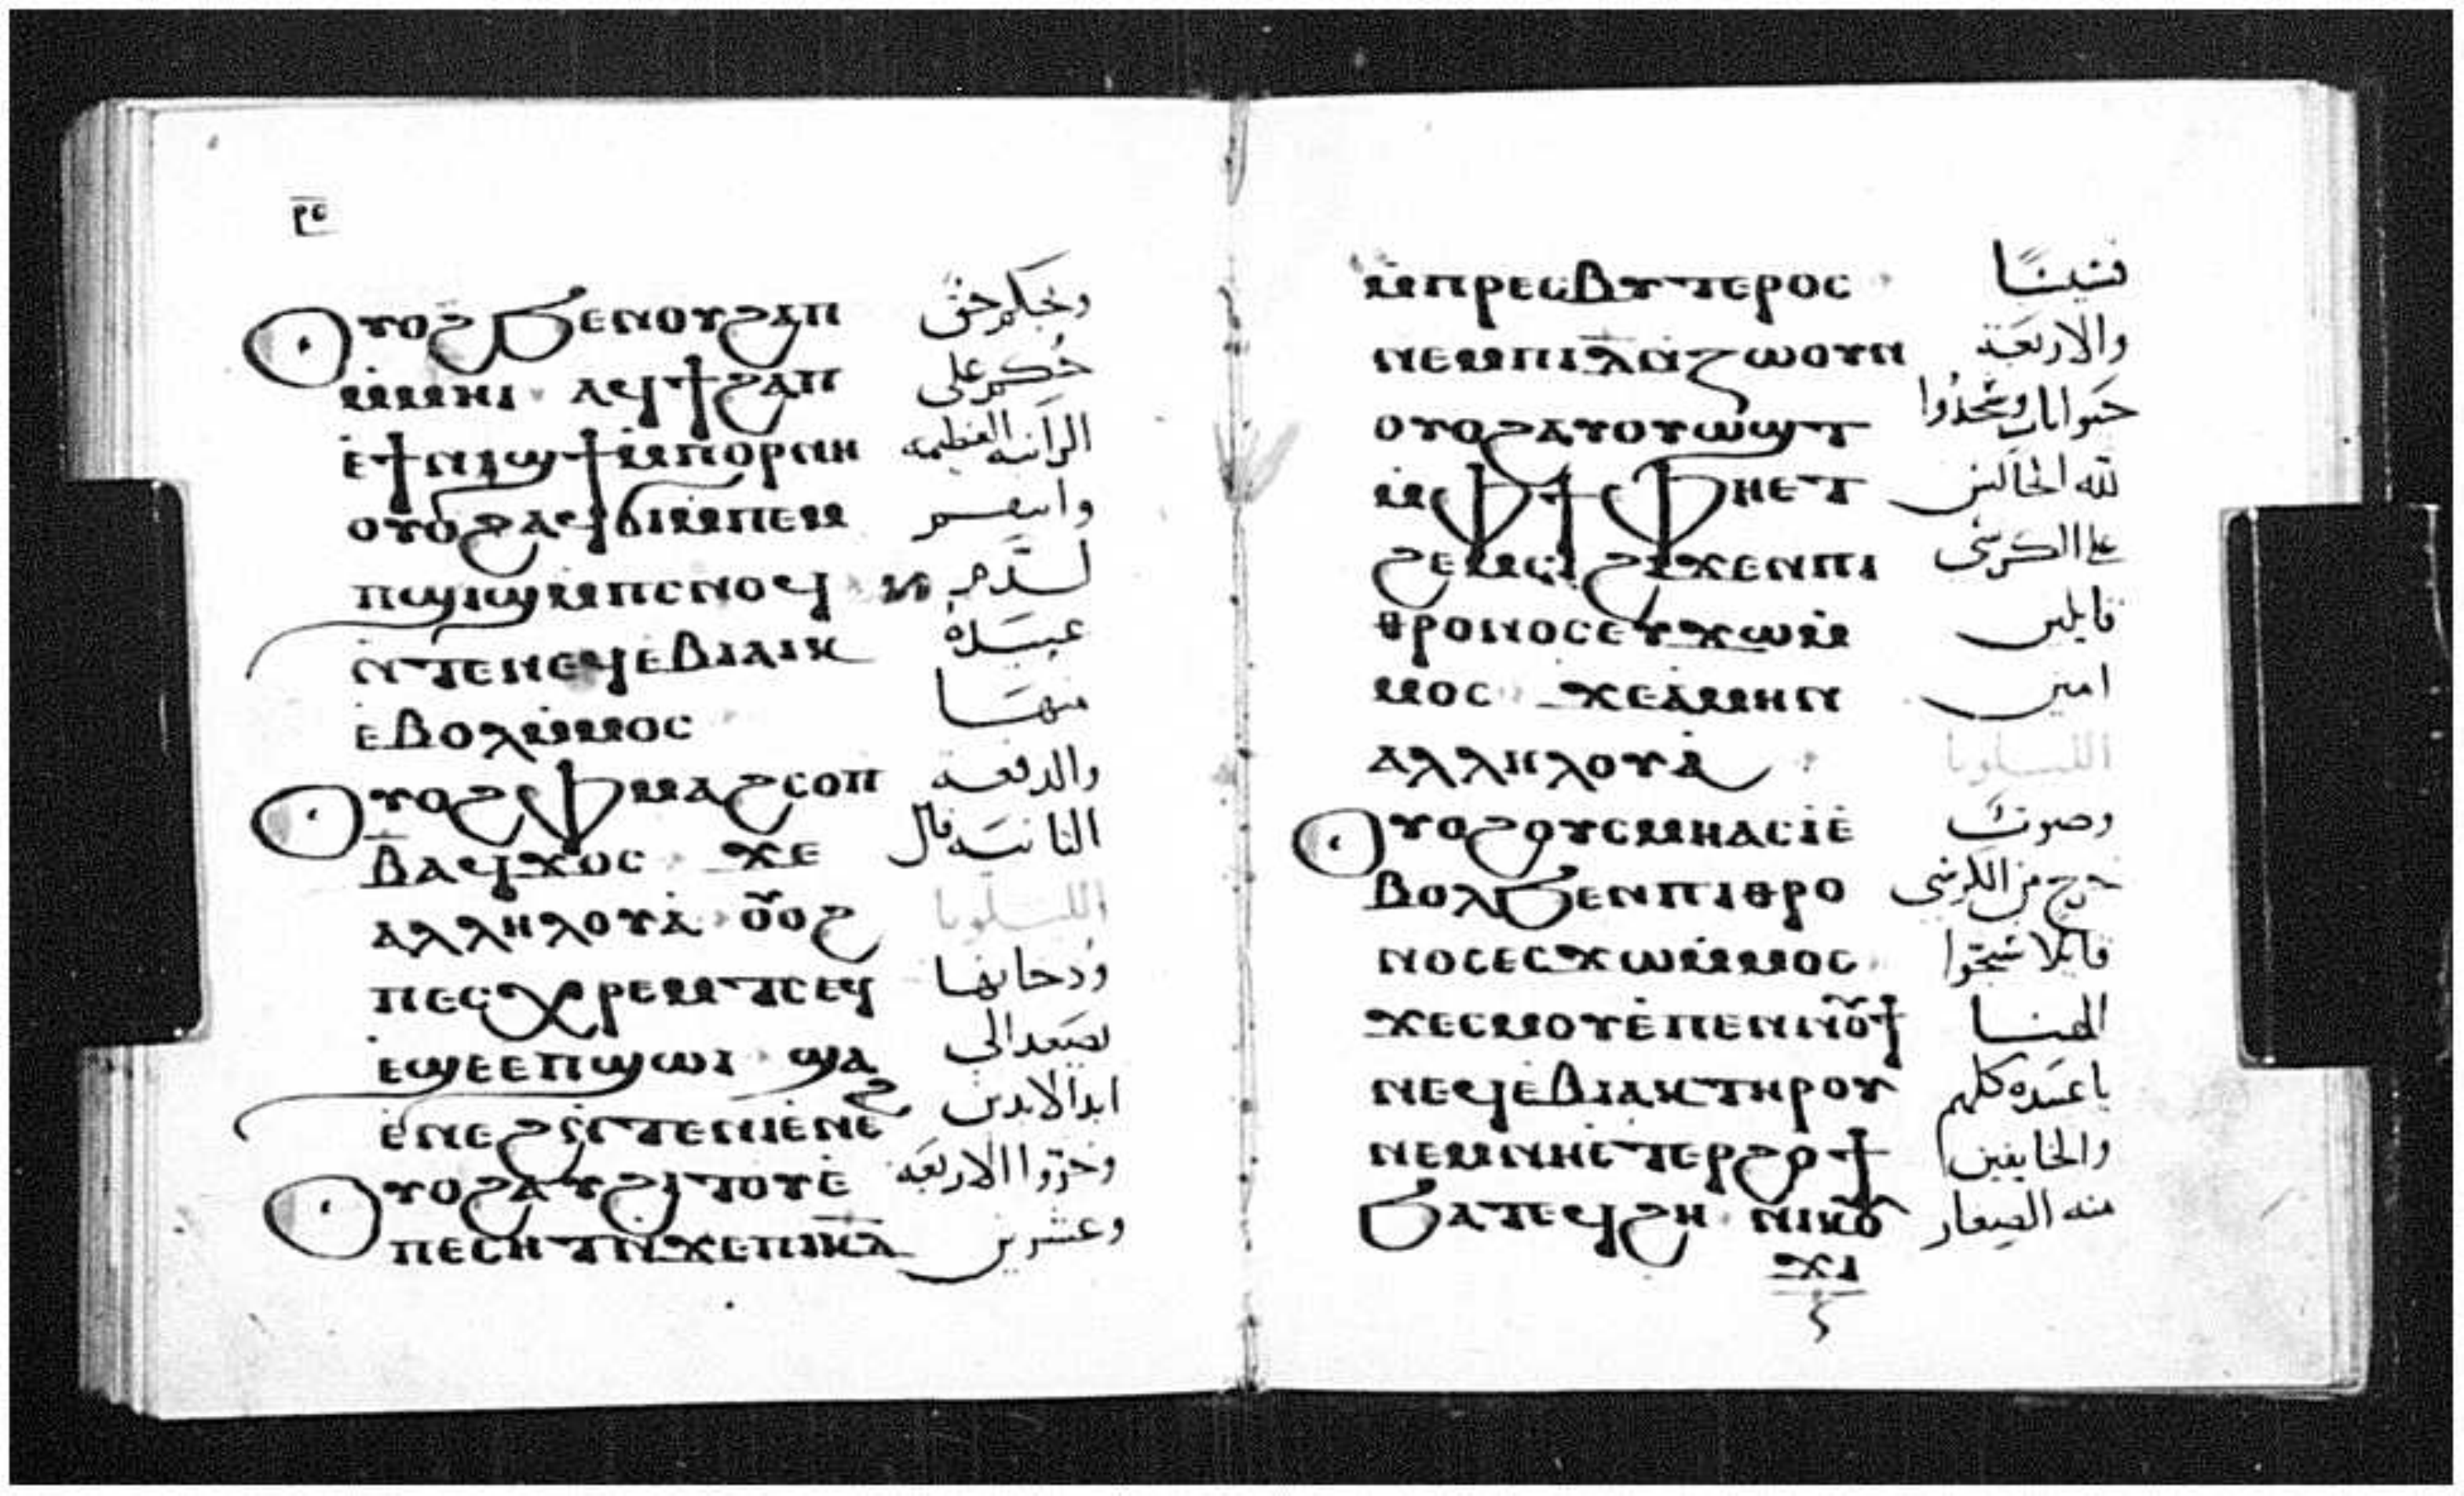 ⲣⲉ
Ⲟⲩⲟϩ ϧⲉⲛⲟⲩϩⲁⲡ وبحكم حق
ⲙ̇ⲙⲏⲓ ⲁϥϯϩⲁⲡ حكم على
ⲉ̇ϯⲛⲓϣϯⲙ̇ⲡⲟⲣⲛⲏ الزانيه العظيمه
ⲟⲩⲟϩⲁϥϭⲓⲙ̇ⲡⲉⲙ وانتقم
ⲡϣⲓϣⲙ̇ⲡⲥⲛⲟϥ لدم
ⲛ̇ⲧⲉⲛⲉϥⲉⲃⲓⲁⲓⲕ عبيده
ⲉⲃⲟⲗⲙ̇ⲙⲟⲥ منها
Ⲟⲩⲟϩⲫⲙⲁϩⲥⲟⲡ والدفعه
ⲃ̅ⲁϥϫⲟⲥ ϫⲉ الثانيه قال
ⲁⲗⲗⲏⲗⲟⲩⲁ̇ ⲟⲩ̅ⲟϩ الليلويا
ⲡⲉⲥⲭⲣⲉⲙⲧⲥⲉϥ ودخانها
ⲉϣⲉⲉⲡϣⲱⲓ ϣⲁ يصعد الى
ⲉ̇ⲛⲉϩⲛ̇ⲧⲉⲛⲓⲉ̇ⲛⲉϩ ابد الابدين
Ⲟⲩⲟϩⲁⲩϩⲓⲧⲟⲩⲉ̇ وخروا الاربعه
ⲡⲉⲥⲏⲧⲛ̇ϫⲉⲡⲓⲕ̅ⲇ̅ وعشرين
ⲙ̇ⲡⲣⲉⲥⲃⲩⲧⲉⲣⲟⲥ قسيسا
ⲛⲉⲙⲡⲓⲇ̅ⲛ̇ⲍⲱⲟⲩⲛ والاربعة
ⲟⲩⲟϩⲁⲩⲟⲩⲱϣⲧ حيوانات وسجدوا
ⲙ̇ⲫϯ ⲫⲏⲉⲧ لله الجالس
ϩⲉⲙⲥⲓ ϩⲓϫⲉⲛⲡⲓ على الكرسى
ⲑⲣⲟⲛⲟⲥⲉⲩϫⲱⲙ̇ قايلين
ⲙⲟⲥ ϫⲉⲁ̇ⲙⲏⲛ امين
ⲁⲗⲗⲏⲗⲟⲩⲁ̇ الليلويا
Ⲟⲩⲟϩⲟⲩⲥⲙⲏⲁⲥⲓ̇ⲉ̇ وصوت
ⲃⲟⲗϧⲉⲛⲡⲓⲑⲣⲟ خرج من الكرسى
ⲛⲟⲥⲉⲥϫⲱⲙ̇ⲙⲟⲥ قايلا سبحوا
ϫⲉⲥⲙⲟⲩⲉ̇ⲡⲉⲛⲛⲟⲩ̅ϯ الهنا
ⲛⲉϥⲉⲃⲓⲁⲕⲧⲏⲣⲟⲩ يا عبيده كلهم
ⲛⲉⲙⲛⲏⲉ̇ⲧⲉⲣϩⲟϯ والخايفين
ϧⲁⲧⲉϥϩⲏ ⲛⲓⲕⲟⲩ منه الصغار
ϫⲓ